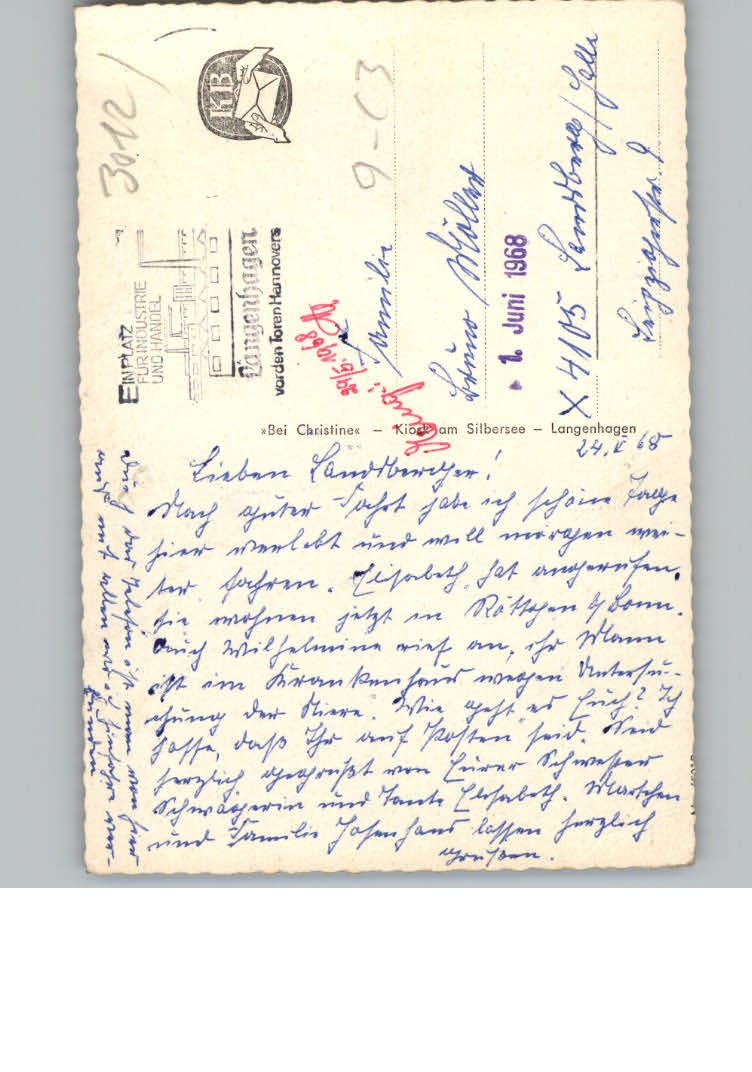 3012/
KB
EIN PLATZ
FÜR INDUSTRIE
UND HANDEL
Langenhagen
vor den Toren Hannovers
9-03
29/5.1968
Familie
Bruno Müller
1. Juni 1968
X 4105 Landsberg/Halle
Leipzigerstr. 9
»Bei Christine« – Kiosk am Silbersee – Langenhagen
24. V 68
Lieben Landsberger!
Nach guter Fahrt habe ich schöne Tage
hier verlebt und will morgen wei-
ter fahren. Elisabeth hat angerufen,
sie wohnen jetzt in Röttgen b/Bonn.
Auch Wilhelmine rief an, ihr Mann
ist im Krankenhaus wegen Untersu-
chung der Niere. Wie geht es Euch? Ich
hoffe, daß Ihr auf "Posten" seid. Seid
herzlich gegrüßt von Eurer Schwester
Schwägerin und Tante Elisabeth.
und Familie lassen herzlich
grüßen.
Durch das Telefon ist man von hier
aus mit allen
bunden